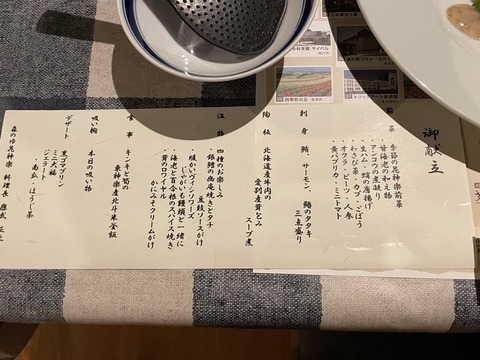 御献立
菜 季節の花神楽前菜
・甘海老の和え物
・アンコウの煮凝り
・生ハム・蛸の唐揚げ
・わさび菜・カブ・ごぼう
・オクラ・ビーツ・人参
・黄パプリカ・ミニトマト
刺身 鮪、サーモン、鰹のタタキ
三点盛り
陶板 北海道産牛肉の
愛別産茸包み
スープ煮
温物 四種のお楽しみ
・銀鱈の幽庵焼きとタチ
豆鼓ソースがけ
・暖かいヴィシソワーズ
じゃがいも饅頭と一緒に
・海老と百合根のスパイス焼き
・茸のロワイヤル
かにみそクリームがけ
食事 キンキと筍の
東神楽産北斗米釜飯
吸い物 本日の吸い物
デザート 黒ゴマプリン
ミニ大福
ジェラート
・南瓜・ほうじ茶
森のゆ花神楽 料理長
四季彩の丘